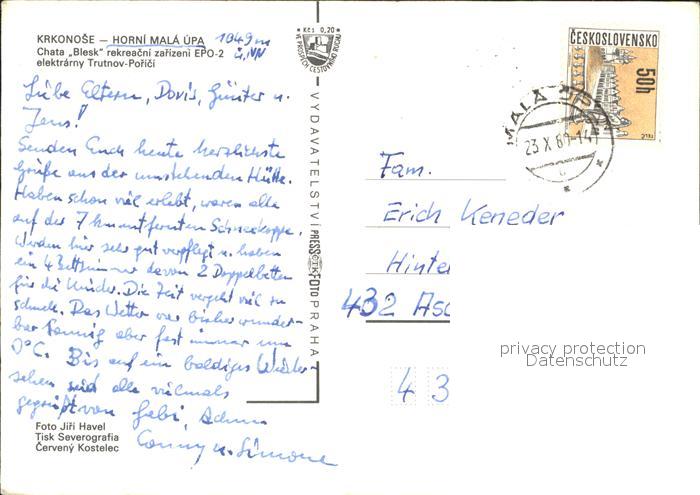 KRKONOŠE – HORNÍ MALÁ ÚPA 1049 m
Chata „Blesk" rekreační zařízení EPO-2 ü. NN
elektrárny Trutnov-Poříčí
Kčs 0,20
VE PROSPĚCH CESTOVNÍHO RUCHU
Liebe Eltern, Doris, Günter u.
Jens!
Senden Euch heute herzlichste
Grüße aus der umstehenden Hütte.
Haben schon viel erlebt, waren alle
auf der 7 km entfernten Schneekoppe.
Werden hier sehr gut verpflegt u. haben
ein 4 Bettzimmer davon 2 Doppelbetten
für die Kinder. Die Zeit vergeht viel zu
schnell. Das Wetter war bisher wunder-
bar sonnig aber fast immer um
0°C. Bis auf ein baldiges Wieder-
sehen seid alle vielmals
gegrüßt von Gabi,
Conny u. Simone
Foto Jiří Havel
Tisk Severografia
Červený Kostelec
VYDAVATELSTVÍ PRESSFOTO PRAHA
ČESKOSLOVENSKO
50h
MALÁ ÚPA
23 X 89-14
Fam.
Erich Keneder
Hinte
432 Asc
4 3
privacy protection
Datenschutz